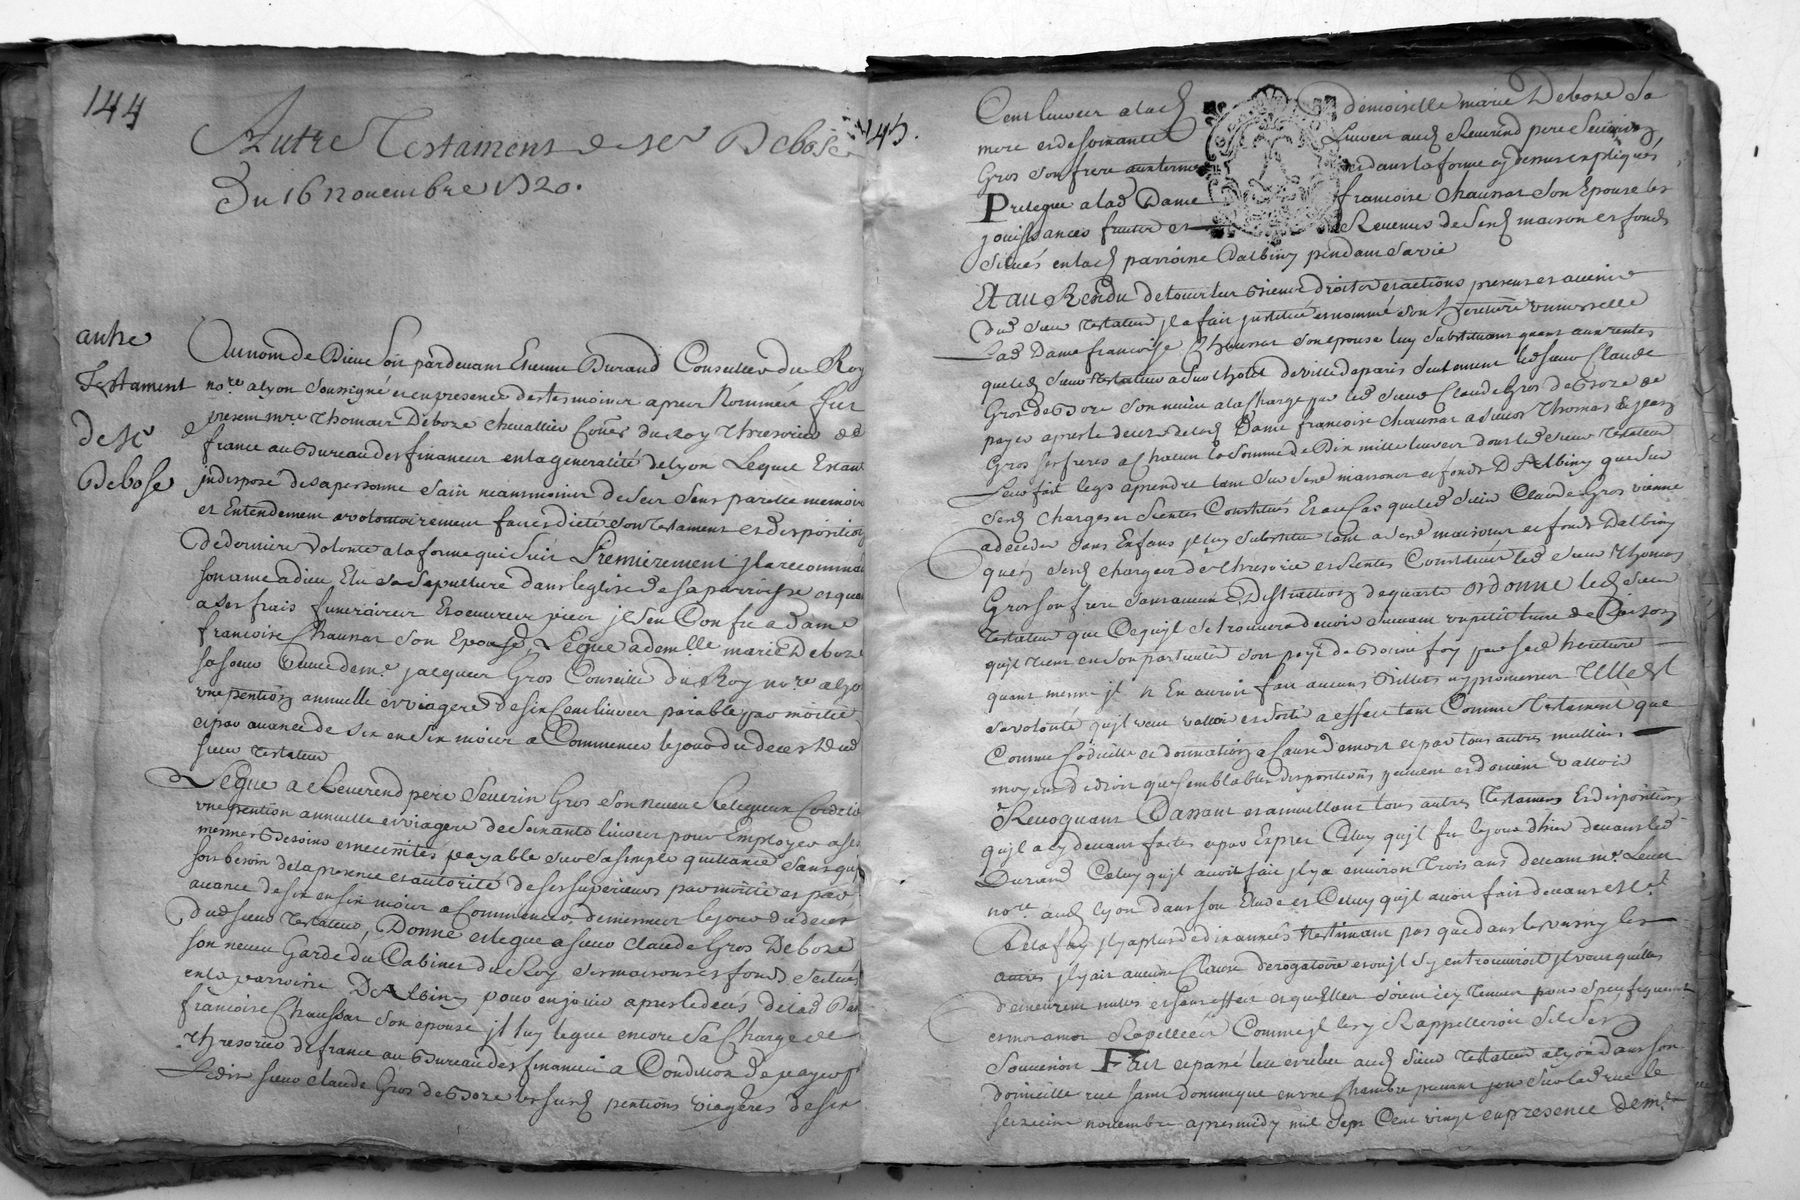 144
Autre Testament de Sr Debose
Du 16 novembre 1720.
autre
Testament
de Sr
Debose
Au nom de Dieu soit pardevant Estienne Durand Conseiller du Roy
nore a lyon soussigné et en presence des tesmoins apres Nommés fut
present mre Thomas Deboze chevallier Coner du Roy Thresorier de
france au Bureau des finances en la generalité de lyon Lequel Estant
indisposé de sa personne sain neanmoins de ses sens parolle memoire
et Entendement a volontairement fait et dicté son testament et disposition
de derniere volonté a la forme qui suit Premierement il a recommandé
son ame a dieu Elu sa sepulture dans leglise de sa parroisse et quant
a ses frais funeraires et oeuvres pies il s'en Confie a Dame
francoise Chaussat son Epouse, Legue a demlle marie Deboze
sa soeur veuve de me jacques Gros Conseiller du Roy nore a lyon
une pention annuelle et viagere de six Cent livres paiable par moitié
et par avance de six en six mois a Commencer le jour du deces dud
sieur testateur
Legue a Reverend pere Severin Gros son neveu Relegieux Cordelier
une pention annuelle et viagere de soixante livres pour Employer a ses
menues Besoins et necessités payable sur sa simple quittance sans quil
soit besoin de la presence et autorité de ses superieurs par moitié et par
avance de six en six mois a Commencer de mesmes le jour du deces
dud sieur testateur, Donne et legue a sieur Claude Gros De boze
son neveu Garde du Cabinet du Roy ses maisons et fonds situés
en la parroisse D'Albiny pour en jouir apres le decés de lad Dame
françoise Chaussat son epouse il luy legue encore sa Charge de
Thresorier de france au Bureau des finances a Condition de payer par
Ledit sieur Claude Gros de Boze les susd pentions viageres de six
145.
Cent livres a lad demoiselle marie Deboze sa
mere et de soixante Livres aud Reverend pere Severin
Gros son frere aux termes et dans la forme cy dessus expliqués
Prelegue a lad Dame francoise Chaussat son Epouse les
jouissances fruits et Revenus de sesd maison et fonds
situés en lad parroisse D'albiny pendant sa vie
Et au Residu de tous ses biens droits et actions presens et avenir
dud sieur testateur il a fait institué et nommé son heritiere universelle
Lad Dame francoise Chaussat son epouse luy substituant quant aux rentes
que led sieur testateur a sur l'hotel de ville de paris seulement led sieur Claude
Gros de Boze son neveu a la Charge par led sieur Claude Gros de Boze de
payer apres le deces de lad Dame francoise Chaussat a sieurs Thomas & jean
Gros ses freres a Chacun la somme de Dix mille livres dont led sieur testateur
Leur fait legs a prendre tant sur sesd maisons et fonds D'Albiny que sur
sesd Charges et Rentes Constitués Et au Cas que led sieur Claude Gros vienne
a deceder sans Enfans il luy substitue tant a sesd maisons et fonds Dalbiny
que sesd charges de Thresorier et Rentes Constituées led sieur Thomas
Gros son frere sans aucune Distraction de quarte ordonne led sieur
testateur que Ce quil se trouvera devoir suivant un petit livre de Raison
quil tient en son particulier soit payé de Bonne foy par sad heritiere
quand mesme il n En auroit fait aucuns Billets ny promesses Telle est
sa volonté quil veut valloir et sortir a effect tant Comme testament que
Comme Codicille et donnation a Cause de mort et par tous autres meilleurs
moyens de droit que semblables dispositions peuvent et doivent valloir
Revoquant Cassant et annullant tous autres testamens Et dispositions
quil a cy devant faites et par Expres Celuy quil fit le jour dhier devant led
Durand Celuy quil avoit fait il y a environ trois ans devant me
nore aud lyon dans son Etude et Celuy quil avoit fait devant
Delafay il y a plus de dix années n'estimant pas que dans les uns ny les
autres il y ait aucune Clause derogatoire et ou il s'y en trouveroit il veut quelles
demeurent nulles et sans effect et quelles soient icy tenues pour specifiquement
et mot a mot Rapellées Comme il les y Rappelleroit s'il s'en
souvenoit Fait et passé leu et releu aud sieur testateur a lyon dans son
domicille rue saint dominique en une Chambre prenant jour sur lad rue le
seizieme novembre apres midy mil sept Cent vingt en presence de me